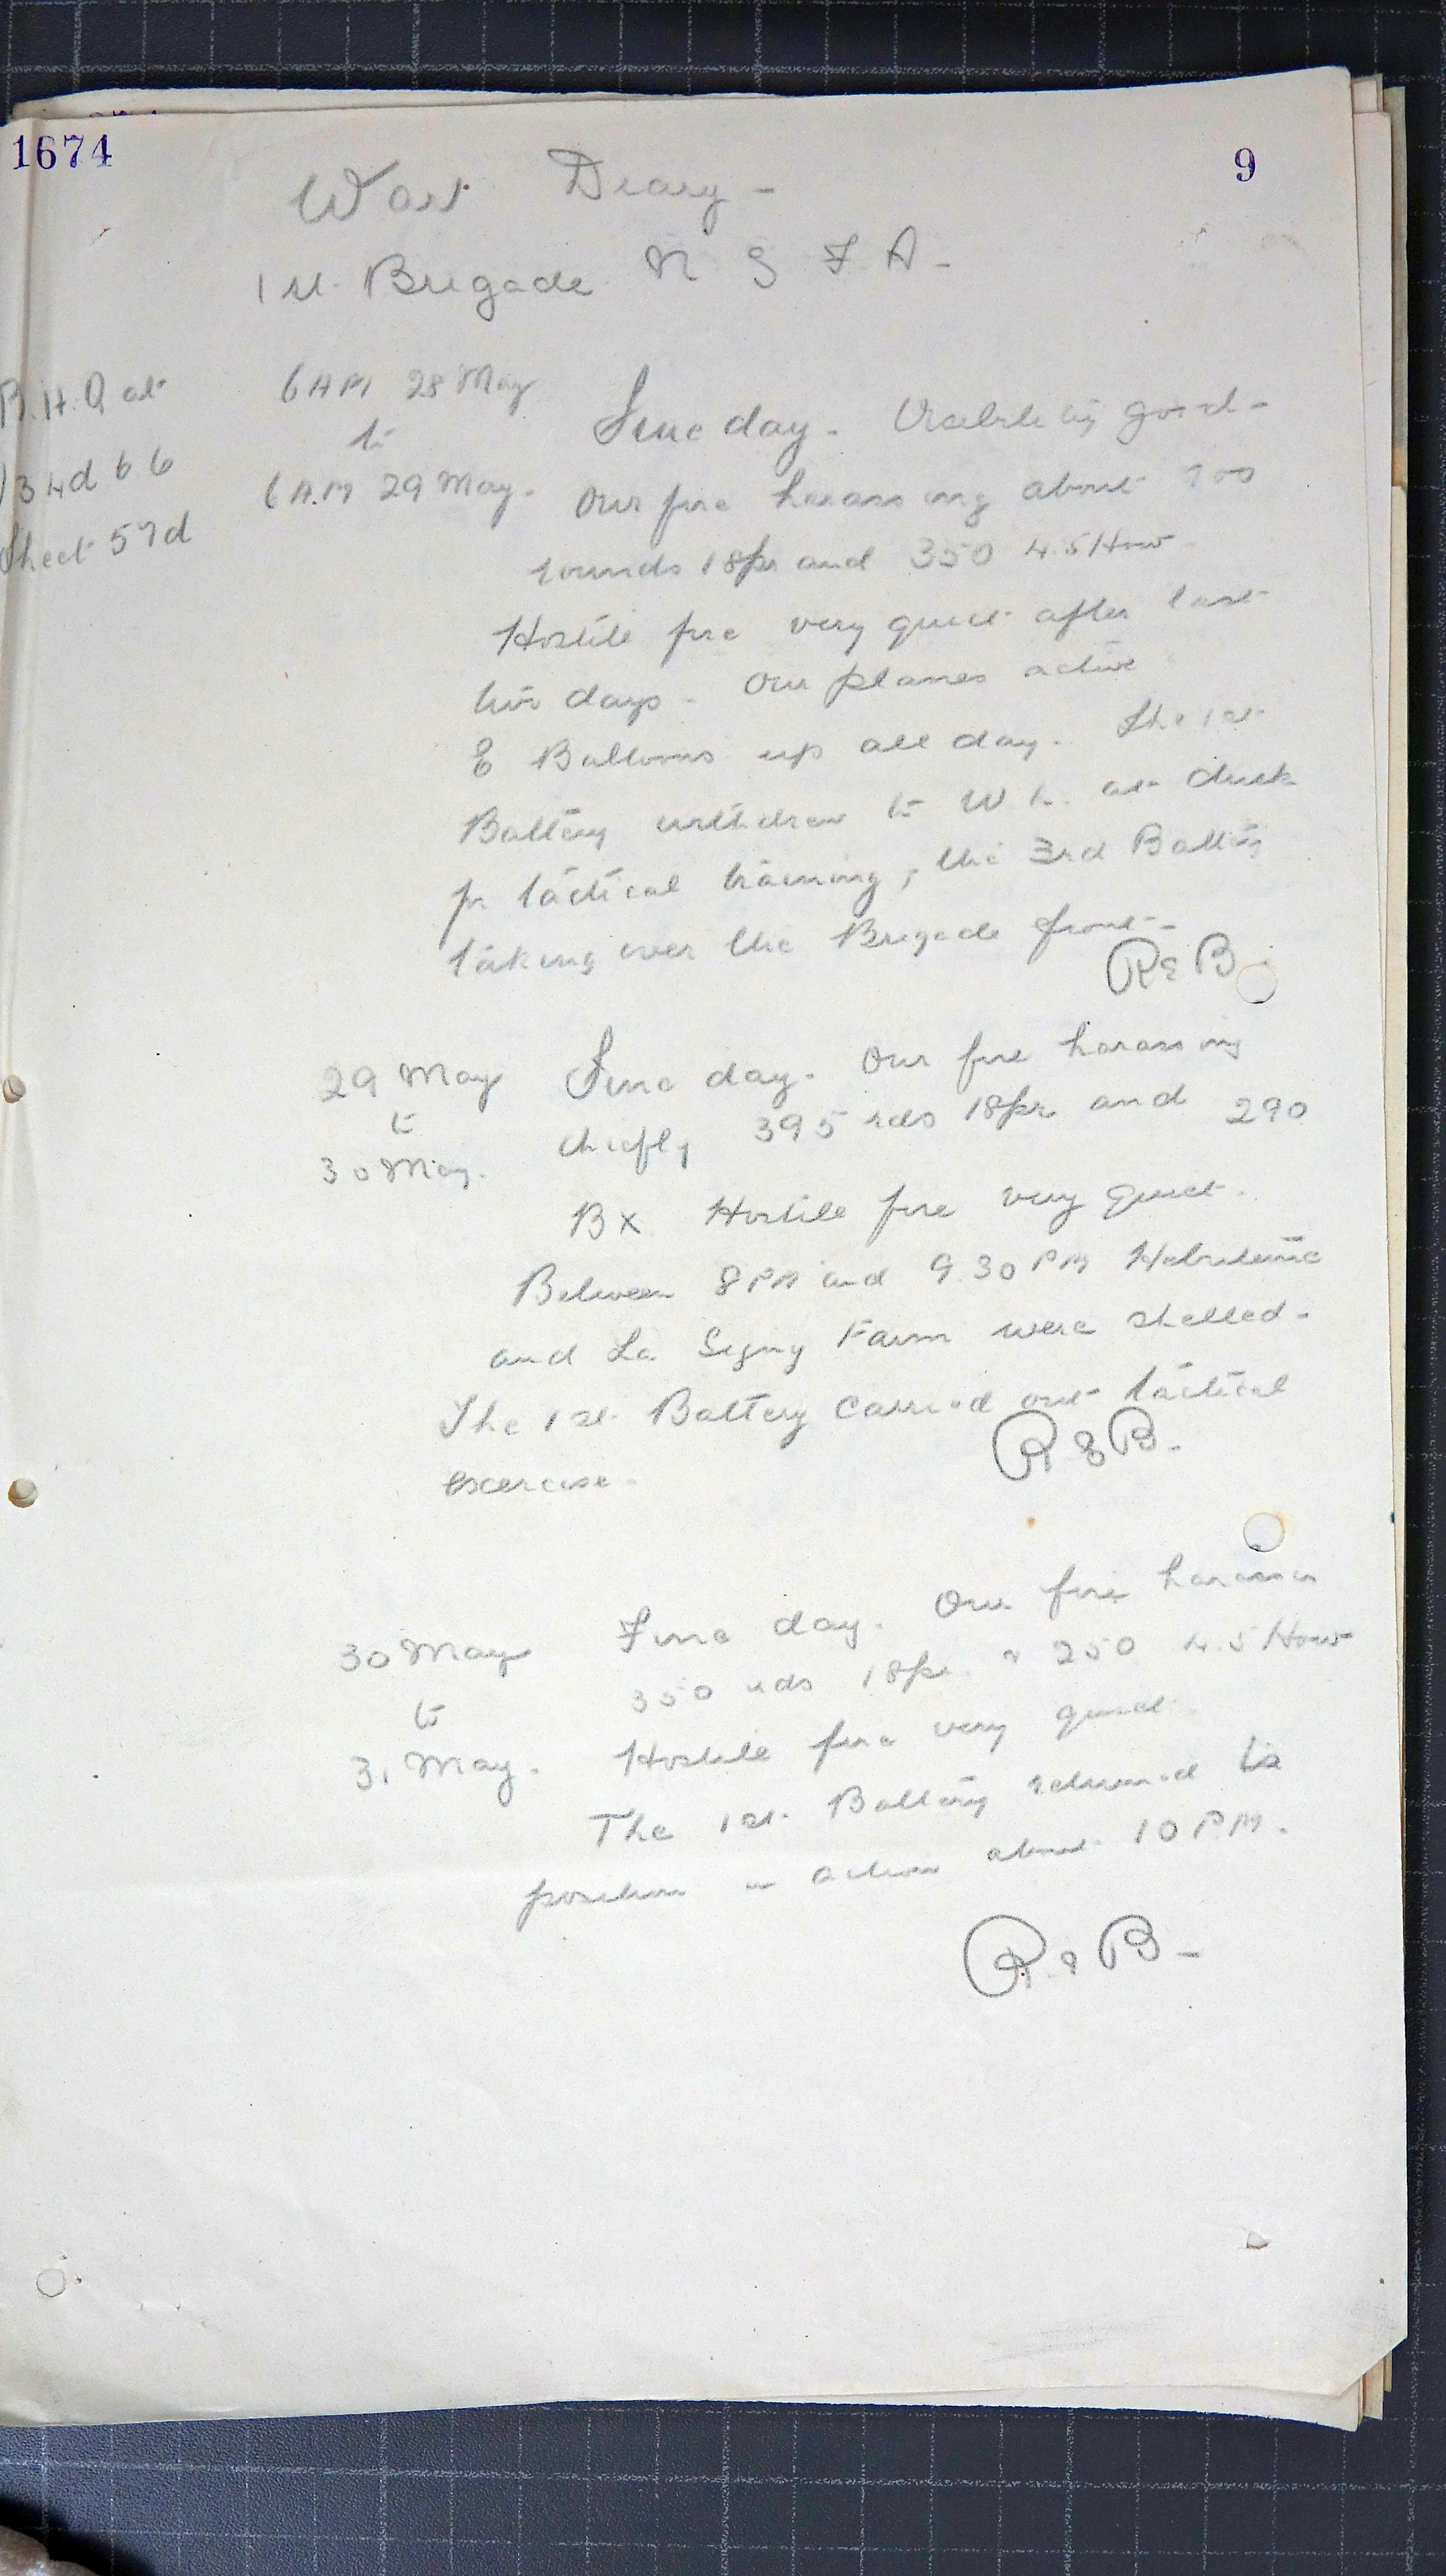 1674
9
War Diary -
1st Brigade N Z F A -
B.H.Q at
J 34d 6 6
Sheet 57d
6 AM 28 May
to
6 A.M 29 May.
Fine day. Visibility good -
Our fire harassing about 700
rounds 18pr and 350 4.5 How
Hostile fire very quiet after last
two days. Our planes active
E Balloons up all day. The 1st
Battery withdrew to W.L. at dusk
for tactical training, the 3rd Battery
taking over the Brigade front -
29 May
to
30 May.
Fine day. Our fire harassing
chiefly 395 rds 18pr and 290
BX Hostile fire very quiet.
Between 8 PM and 9.30 PM Hebuterne
and La Signy Farm were shelled -
The 1st Battery carried out tactical
exercise.
30 May
to
31 May.
Fine day. Our fire harassing
350 rds 18pr & 250 4.5 How
Hostile fire very quiet
The 1st Battery returned to
position in action about 10 P.M.